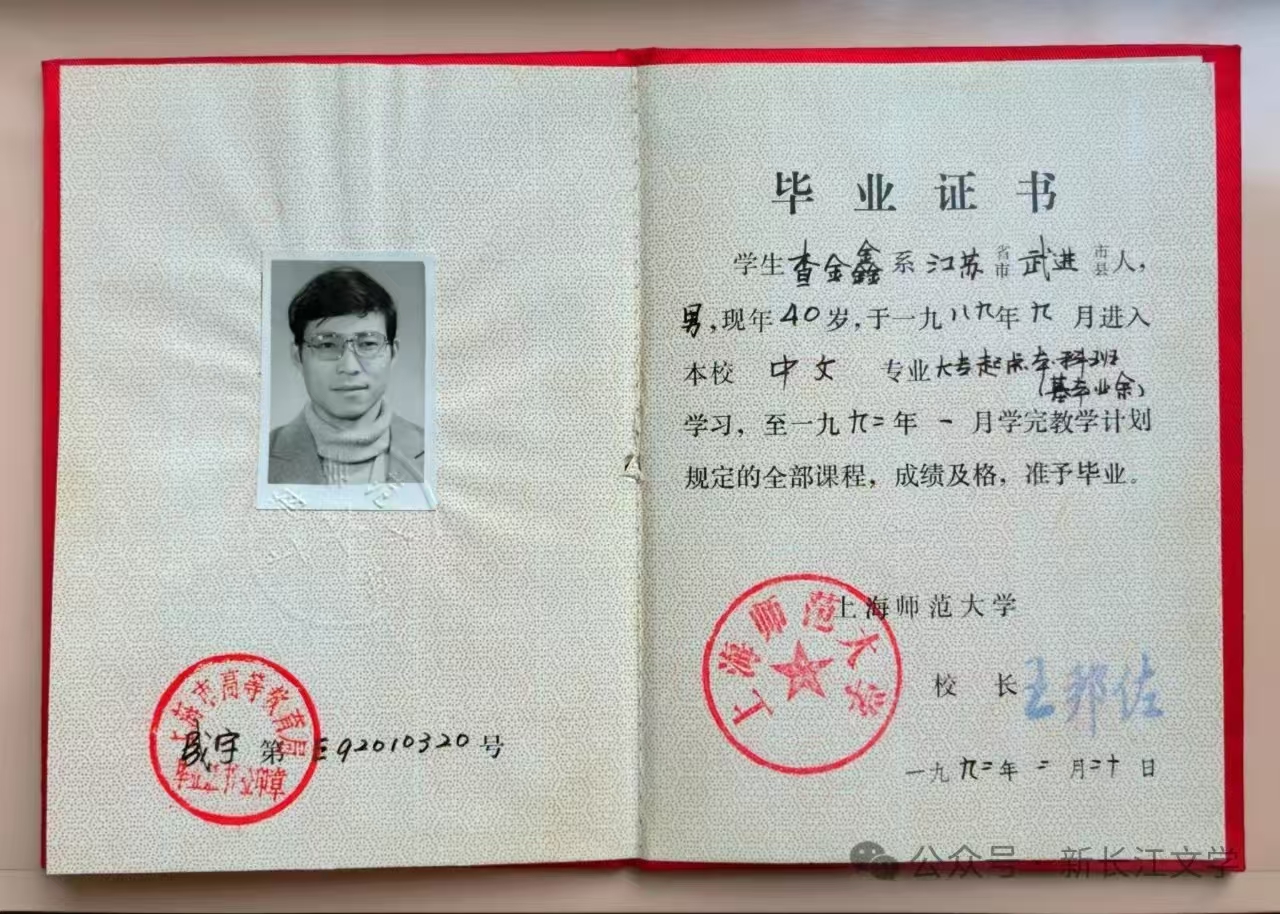 上海市高等教育局
成字第E92010320号
毕业证书验印章
毕业证书
学生查金鑫系江苏省市武进市县人，
男，现年40岁，于一九八九年九月进入
本校中文专业大专起点本科班
（基本业余）
学习，至一九九二年一月学完教学计划
规定的全部课程，成绩及格，准予毕业。
上海师范大学
上海师范大学
校长王邦佐
一九九二年二月二十日
公众号·新长江文学